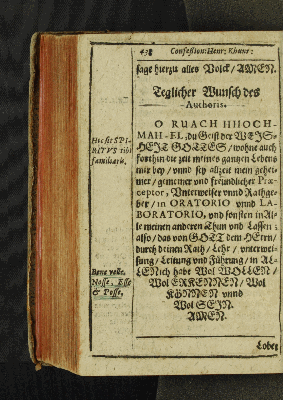 438 Confession: Henr: Khunr:
sage hierzu alles Volck / AMEN.
Teglicher Wunsch des
Authoris.
O RUACH HHOCH-
MAH-EL, du Geist der WEIS-
HEIT GOTTES / wohne auch
forthin die zeit meines gantzen Lebens
mir bey / vnnd sey allzeit mein gehei-
mer / gemeiner vnd freundlicher Præ-
ceptor, Unterweiser vnnd Rathge-
ber / in ORATORIO vnnd LA-
BORATORIO, vnd sonsten in Al-
le meinen anderen Thun vnd Lassen;
also / das von GOTT dem HErrn /
durch deinen Rath / Lehr / vnterwei-
sung / Leitung vnd Führung / in AL-
LEN ich habe Wol WOLLEN /
Wol ERKENNEN / Wol
KÖNNEN vnnd
Wol SEIN.
AMEN.
Lobet
Hic sit SPI-
RITVS tibi
familiaris.
Bene velle,
Nosse, Esse
& Posse.